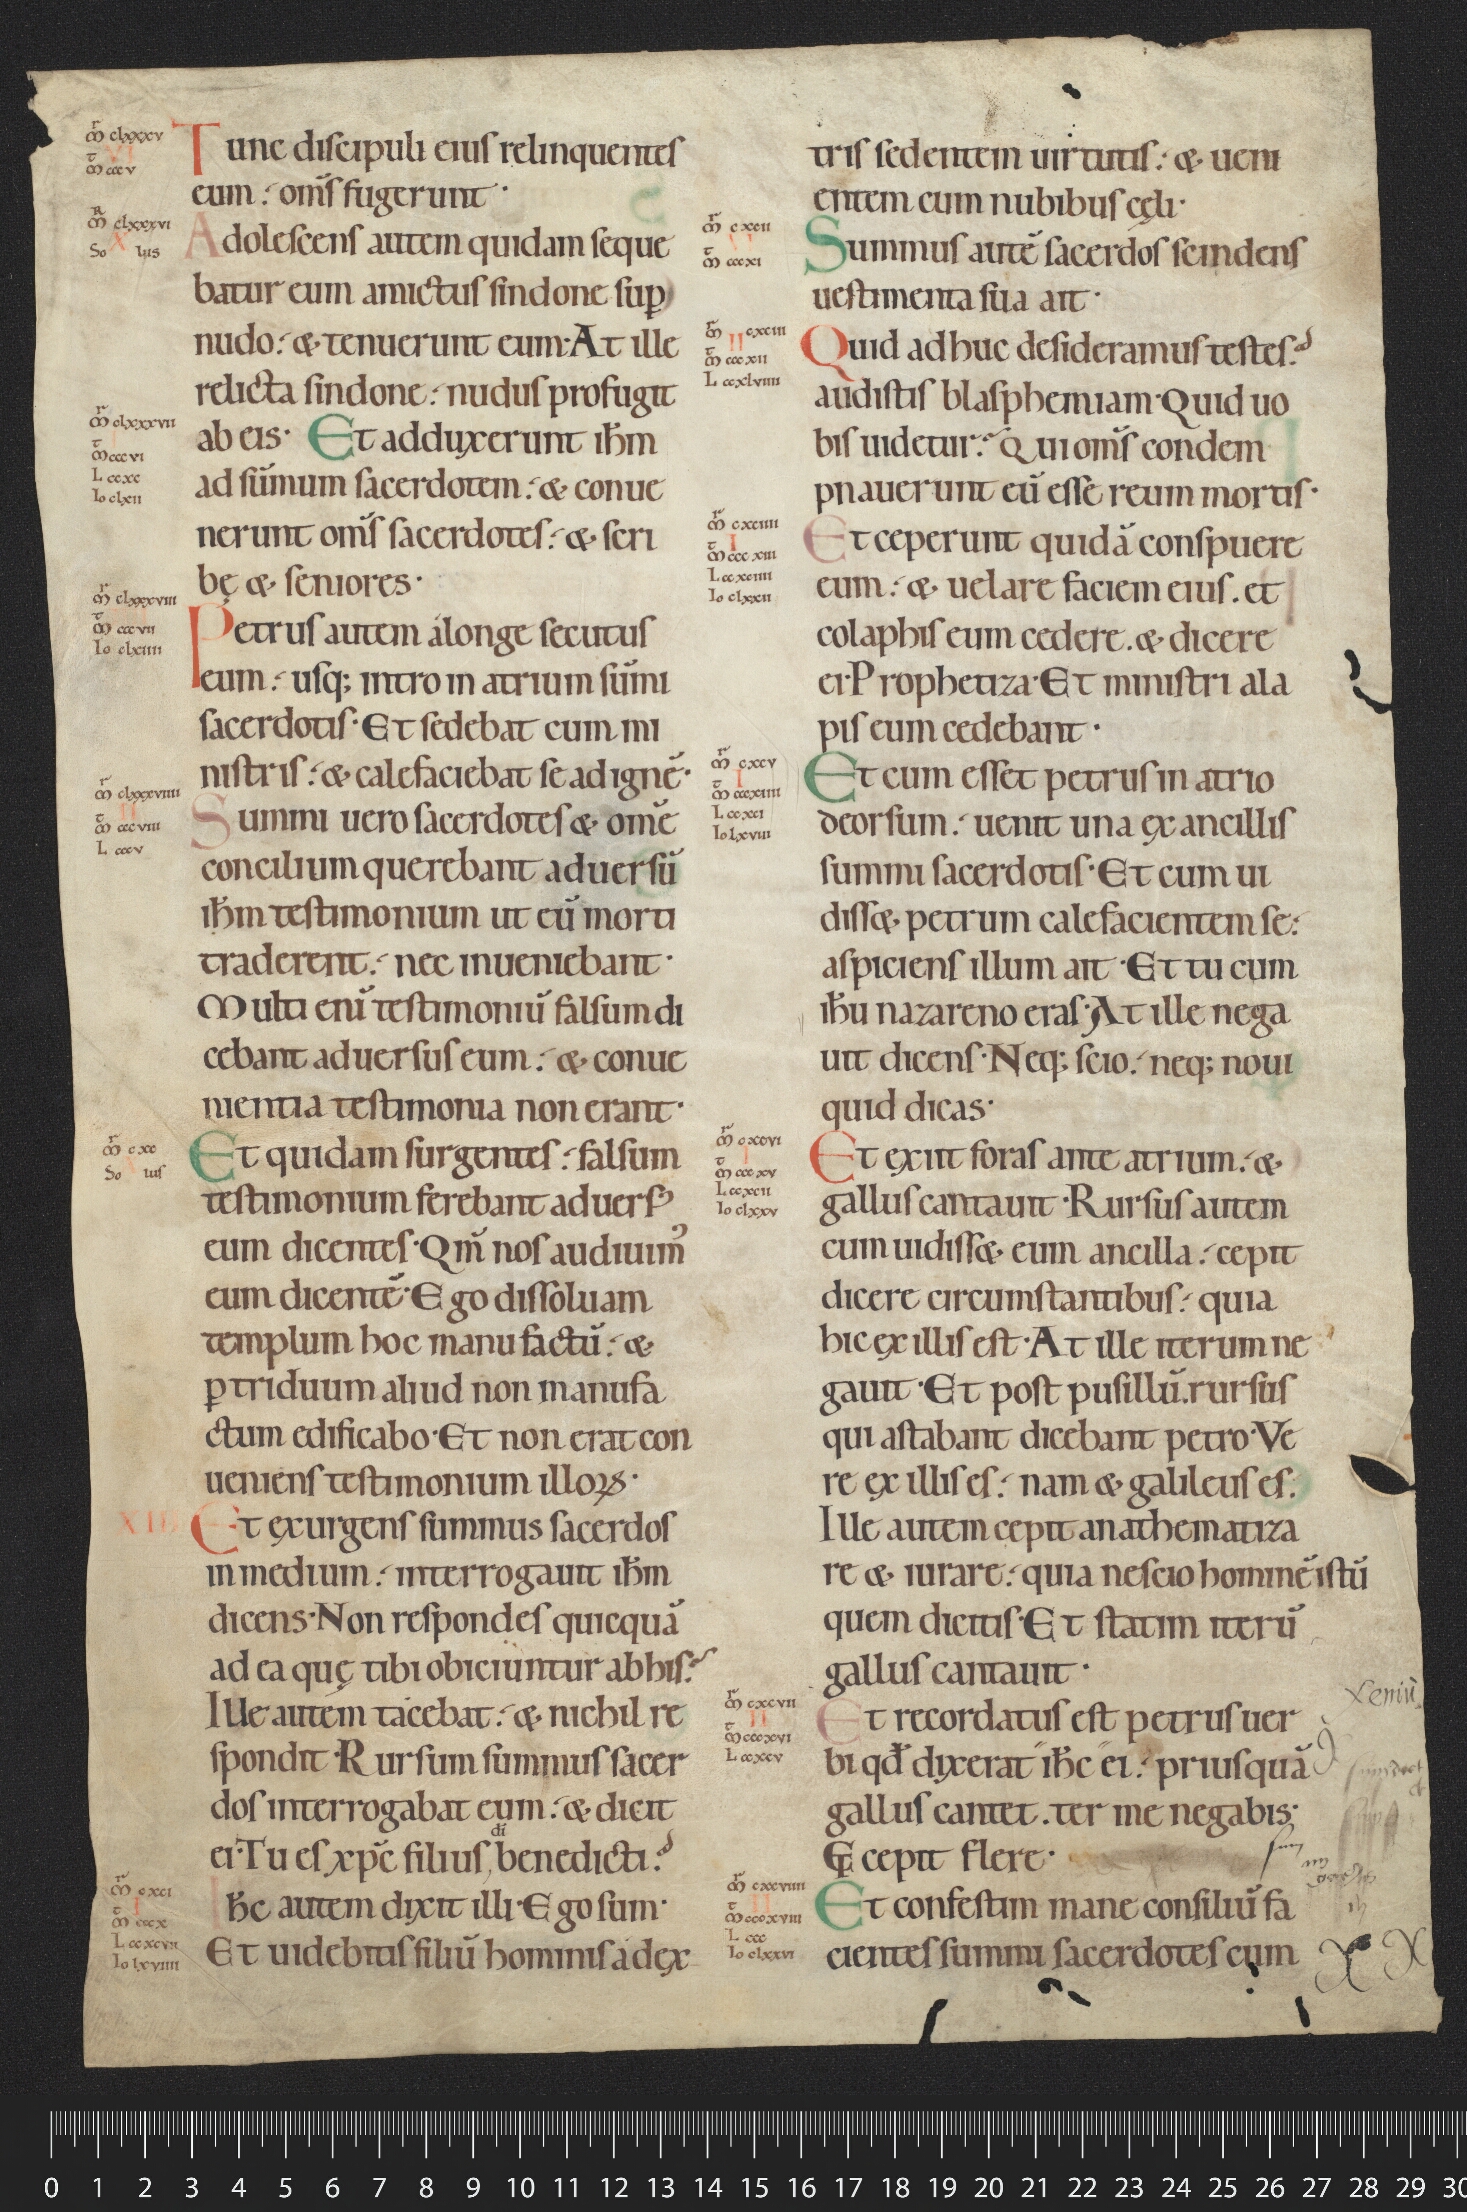 Tunc discipuli eius relinquentes
eum: om̅s fugerunt·
Adolescens autem quidam seque
batur eum amictus sindone sup̱
nudo: & tenuerunt eum·At ille
relicta sindone: nudus profugit
ab eis· Et adduxerunt ih̅m
ad su̅mum sacerdotem: & conue
nerunt om̅s sacerdotes: & scri
bę & seniores·
Petrus autem álonge secutus
eum: usq; intro in atrium su̅mi
sacerdotis·Et sedebat cum mi
nistris: & calefaciebat se ad igne̅·
Summi uero sacerdotes & om̅e
concilium querebant aduersu̅
ih̅m testimonium ut eu̅ morti
traderent: nec inueniebant·
Multi eni̅ testimoniu̅ falsum di
cebant aduersus eum: & conue
nientia testimonia non erant·
Et quidam surgentes: falsum
testimonium ferebant aduersꝰ
eum dicentes·Qm̅ nos audiuimꝰ
eum dicente̅·Ego dissoluam
templum hoc manu factu̅: &
ꝑ triduum aliud non manufa
ctum edificabo·Et non erat con
ueniens testimonium illoꝝ·
XII Et exurgens summus sacerdos
in medium: interrogauit ih̅m
dicens·Non respondes quicqua̅
ad ea quę tibi obiciuntur ab his?
Ille autem tacebat: & nichil re
spondit·Rursum summus sacer
dos interrogabat eum: & dicit
ei·Tu es xp̅c filius di̅ benedicti?
Ih̅c autem dixit illi·Ego sum·
Et uidebitis filiu̅ hominis a dex
tris sedentem uirtutis: & ueni
entem cum nubibus cęli·
Summus aute̅ sacerdos scindens
uestimenta sua ait·
Quid adhuc desideramus testes?
audistis blasphemiam·Quid uo
bis uidetur? Qui om̅s condem
pnauerunt eu̅ esse reum mortis·
Et ceperunt quida̅ conspuere
eum: & uelare faciem eius. et
colaphis eum cedere. & dicere
ei·Prophetiza·Et ministri ala
pis eum cedebant·
Et cum esset petrus in atrio
deorsum: uenit una ex ancillis
summi sacerdotis·Et cum ui
diss& petrum calefacientem se:
aspiciens illum ait·Et tu cum
ih̅u nazareno eras·At ille nega
uit dicens·Neq; scio: neq; noui
quid dicas·
Et exiit foras ante atrium: &
gallus cantauit·Rursus autem
cum uidiss& eum ancilla: cepit
dicere circumstantibus: quia
hic ex illis est·At ille iterum ne
gauit·Et post pusillu̅.rursus
qui astabant dicebant petro·Ve
re ex illis es: nam & galileus es.
Ille autem cepit anathematiza
re & iurare: quia nescio homine̅ istu̅
quem dicitis·Et statim iteru̅
gallus cantauit·
Et recordatus est petrus uer
bi qd̅ dixerat ih̅c ei: priusqua̅
gallus cantet.ter me negabis·
Et cepit flere·
Et confestim mane consiliu̅ fa
cientes summi sacerdotes cum